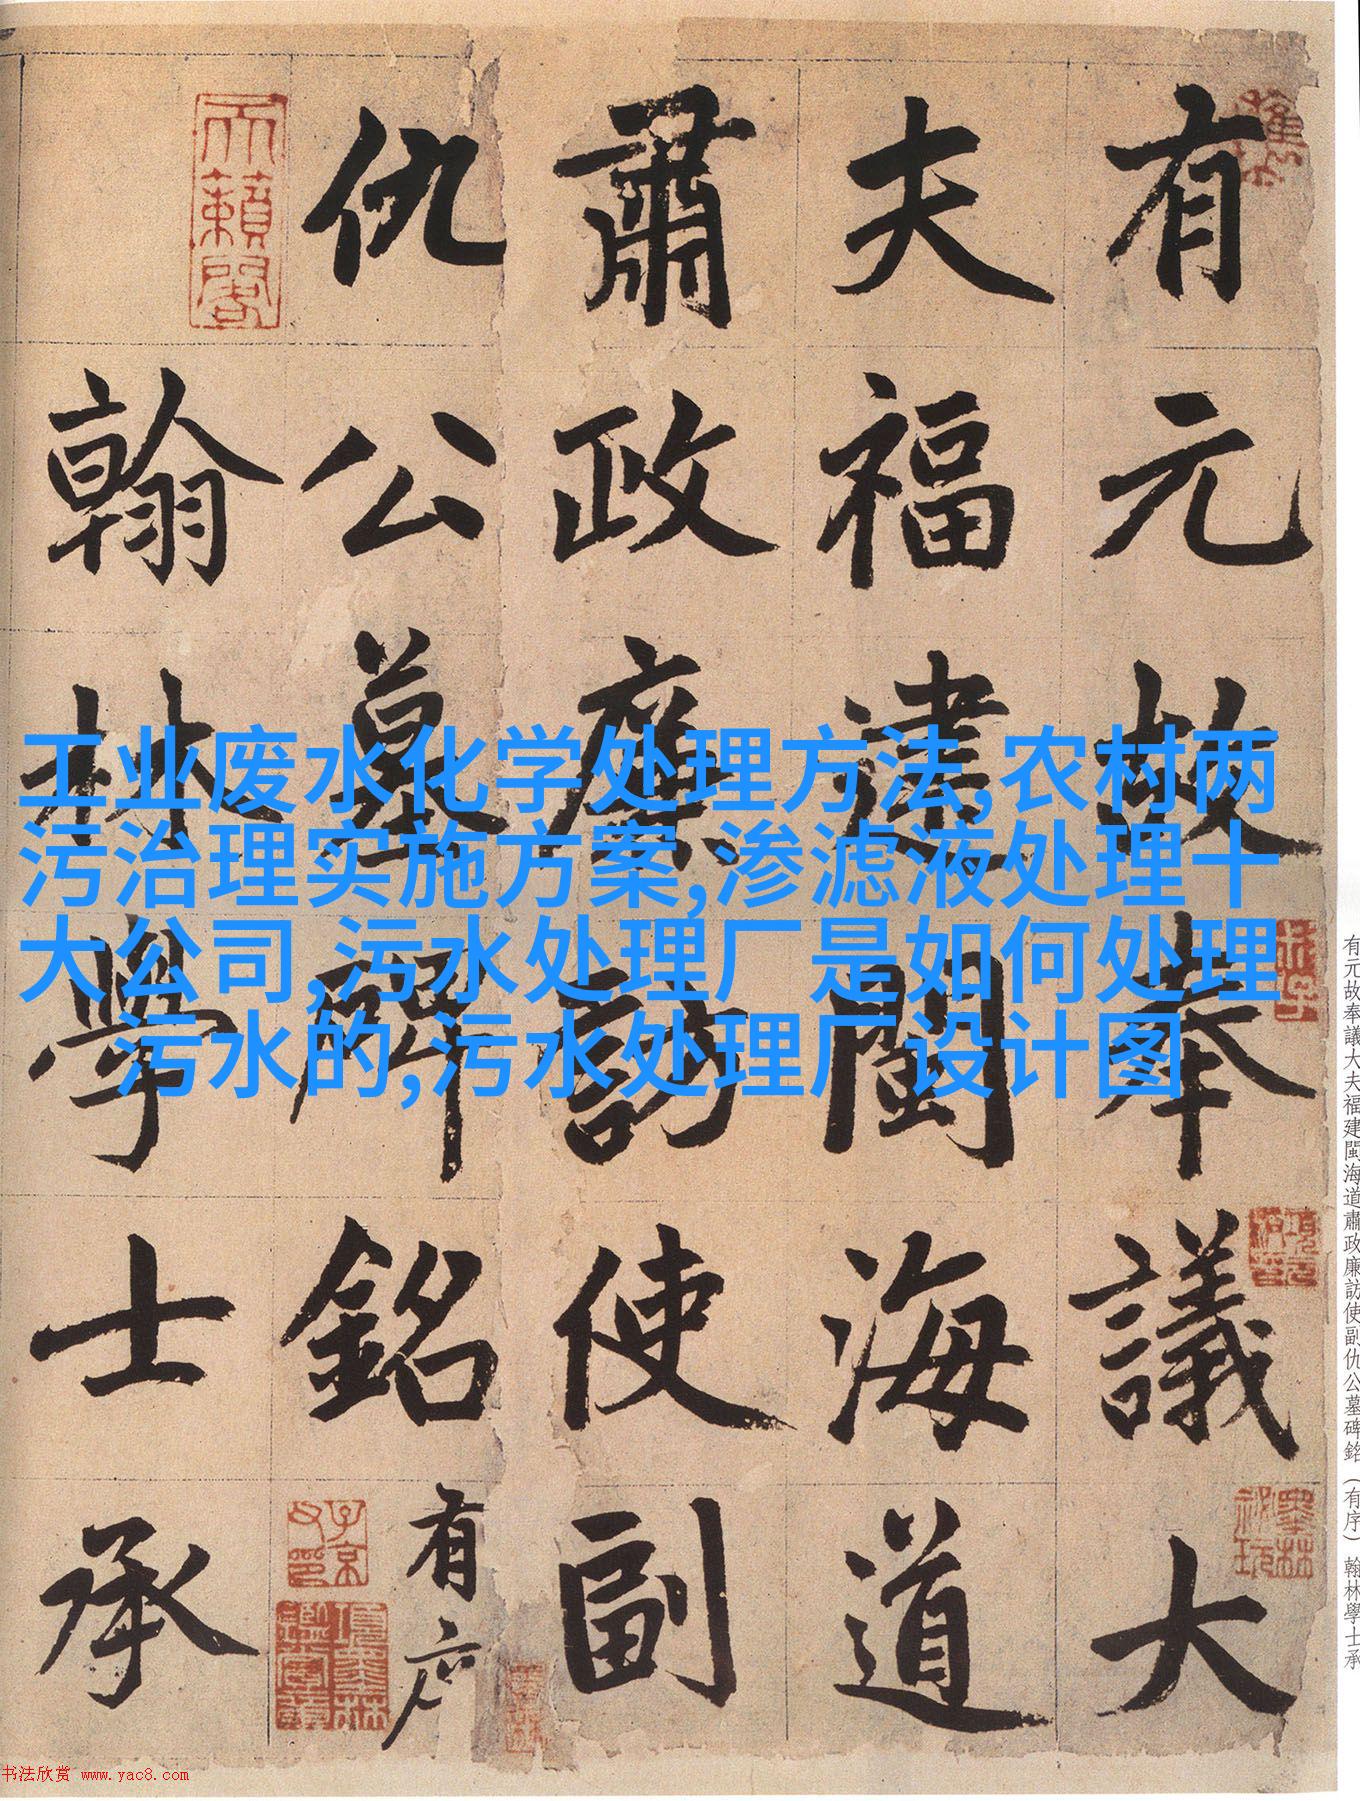 有元故奉議大
夫福建閩海道
肅政廉訪使副
仇公墓碑銘有序
翰林學士承
天籟閣
子京父印
墨林祕玩
工业废水化学处理方法,农村两
污治理实施方案,渗滤液处理十
大公司,污水处理厂是如何处理
污水的,污水处理厂设计图
有元故奉議大夫福建閩海道肅政廉訪使副仇公墓碑銘(有序)翰林學士承
书法欣赏 www.yac8.com